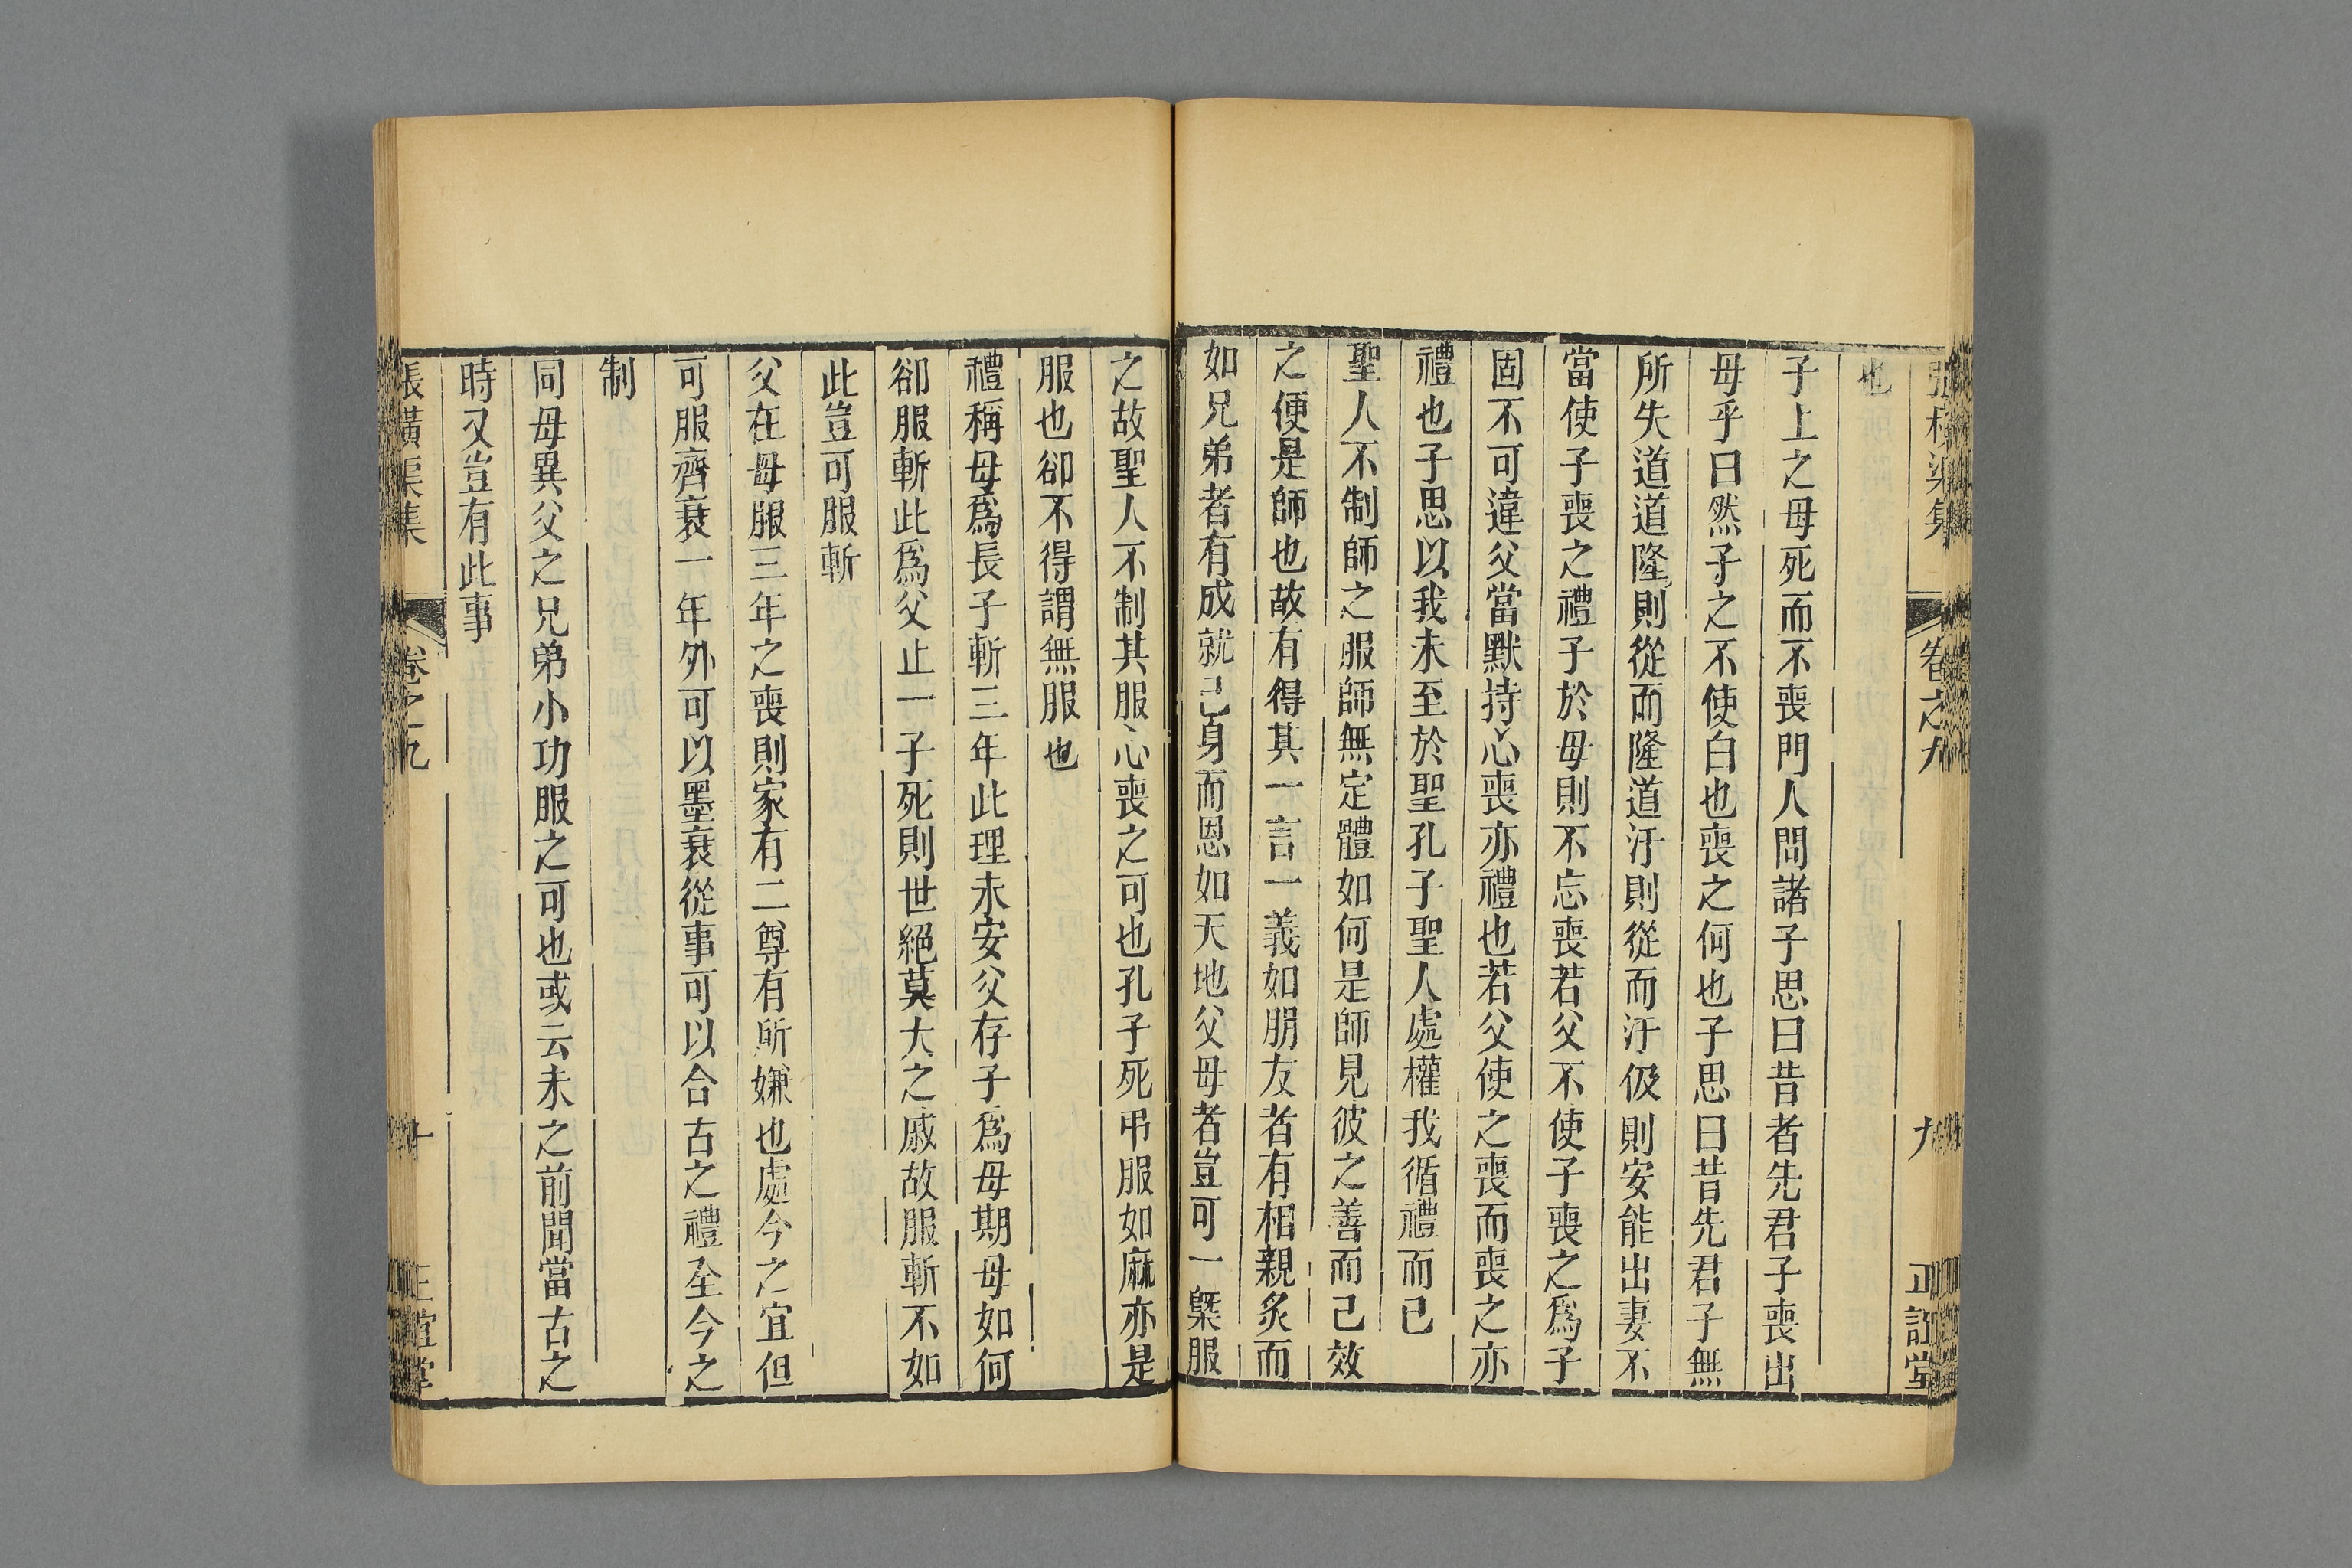 張橫渠集 卷之九 九 正誼堂
也
子上之母死而不喪門人問諸子思曰昔者先君子喪出
母乎曰然子之不使白也喪之何也子思曰昔先君子無
所失道道隆則從而隆道汙則從而汙伋則安能出妻不
當使子喪之禮子於母則不忘喪若父不使子喪之爲子
固不可違父當默持心喪亦禮也若父使之喪而喪之亦
禮也子思以我未至於聖孔子聖人處權我循禮而已
聖人不制師之服師無定體如何是師見彼之善而己效
之便是師也故有得其一言一義如朋友者有相親炙而
如兄弟者有成就己身而恩如天地父母者豈可一槩服
之故聖人不制其服心喪之可也孔子死弔服如麻亦是
服也卻不得謂無服也
禮稱母爲長子斬三年此理未安父存子爲母期母如何
卻服斬此爲父止一子死則世絕莫大之戚故服斬不如
此豈可服斬
父在母服三年之喪則家有二尊有所嫌也處今之宜但
可服齊衰一年外可以墨衰從事可以合古之禮全今之
制
同母異父之兄弟小功服之可也或云未之前聞當古之
時又豈有此事
張橫渠集 卷之九 十 正誼堂